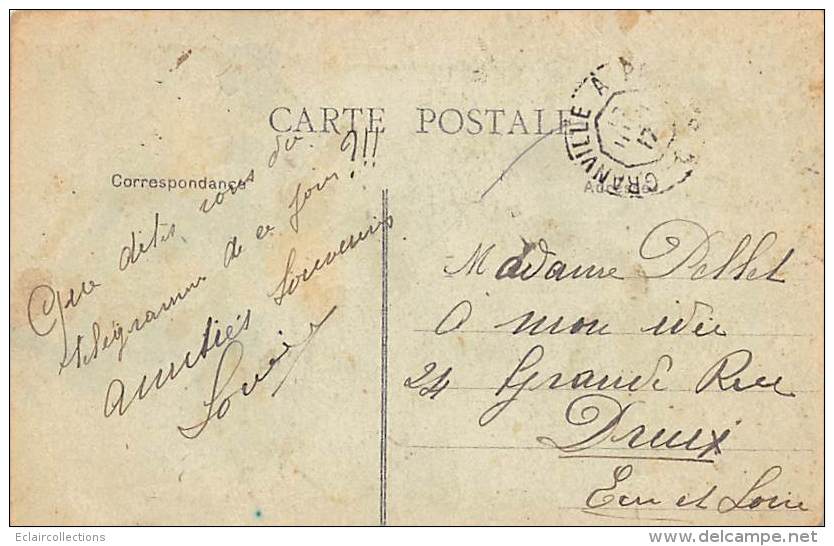 CARTE POSTALE
Correspondance
Adresse
GRANVILLE A
17
Que dites vous du
télégramme de ce jour ?!!!
amitiés souvenirs
Madame Pellet
A mon idée
24 Grande Rue
Dreux
Eure et Loire
Eclaircollections
www.delcampe.net